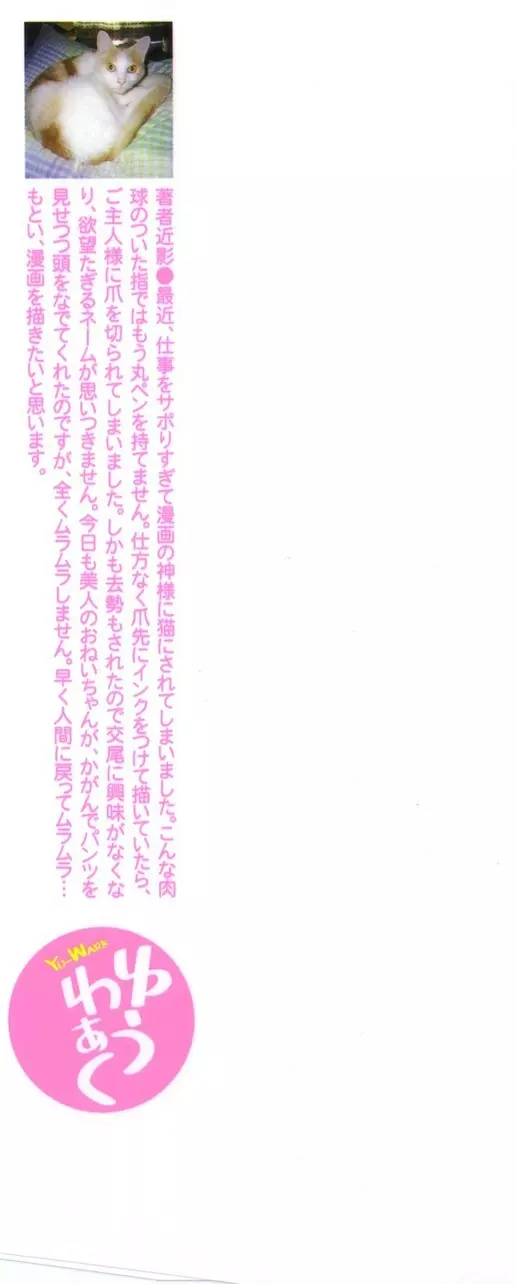 著者近影●最近、仕事をサボりすぎて漫画の神様に猫にされてしまいました。こんな肉
球のついた指ではもう丸ペンを持てません。仕方なく爪先にインクをつけて描いていたら、
ご主人様に爪を切られてしまいました。しかも去勢もされたので交尾に興味がなくな
り、欲望たぎるネームが思いつきません。今日も美人のおねいちゃんが、かがんでパンツを
見せつつ頭をなでてくれたのですが、全くムラムラしません。早く人間に戻ってムラムラ…
もとい、漫画を描きたいと思います。
YU-WARK
ゆう
わぁく